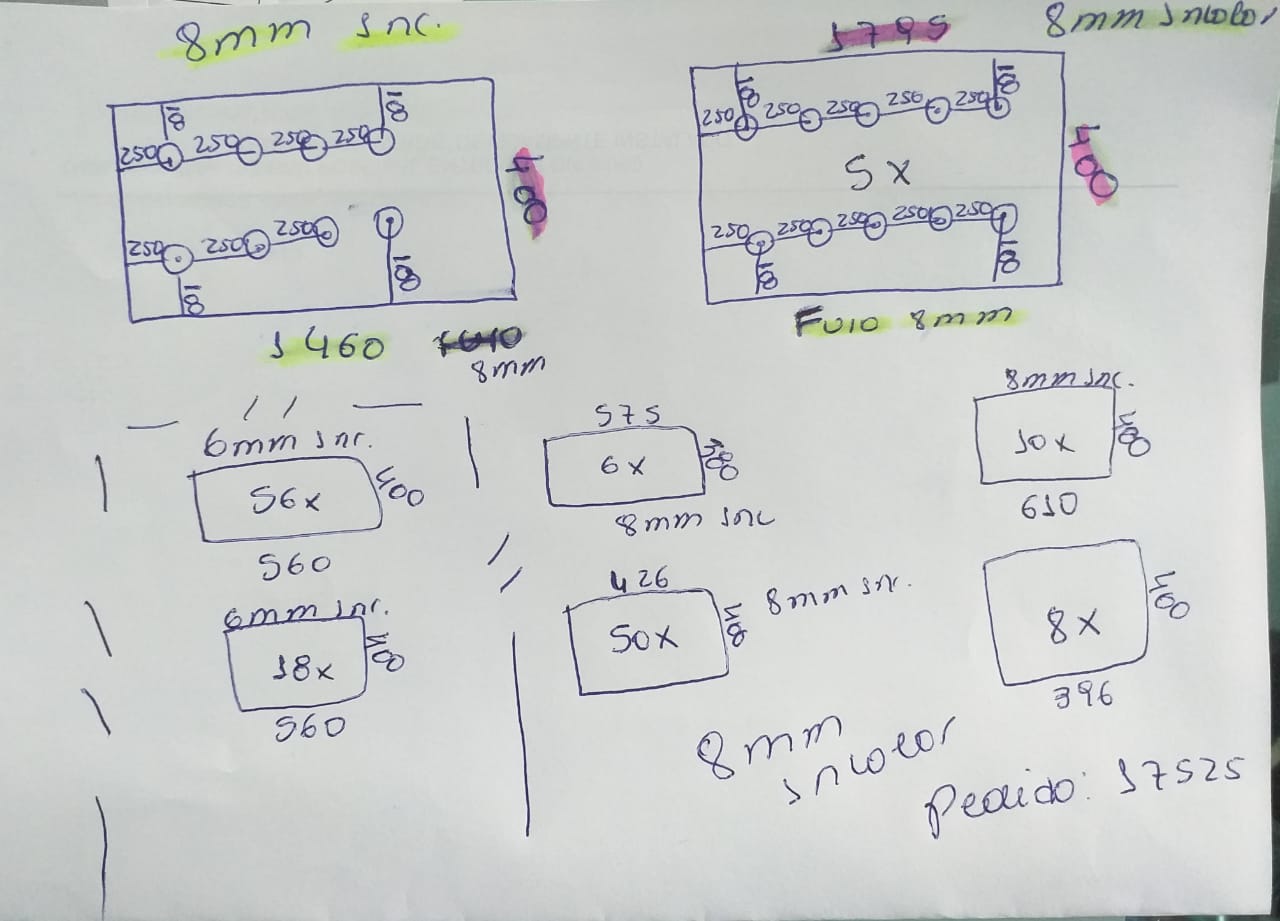 8mm Inc.
1795
8mm Incolor
18
18
250
250
250
250
400
250
250
250
250
18
18
1460
8mm
18
18
250
250
250
250
250
400
5x
250
250
250
250
250
18
18
Furo 8mm
6mm Inc.
56x
400
560
6mm Inc.
18x
400
560
575
6x
380
8mm Inc
426
50x
400
8mm Inc.
8mm Inc.
10x
400
610
8x
400
396
8mm
Incolor
Pedido: 17525